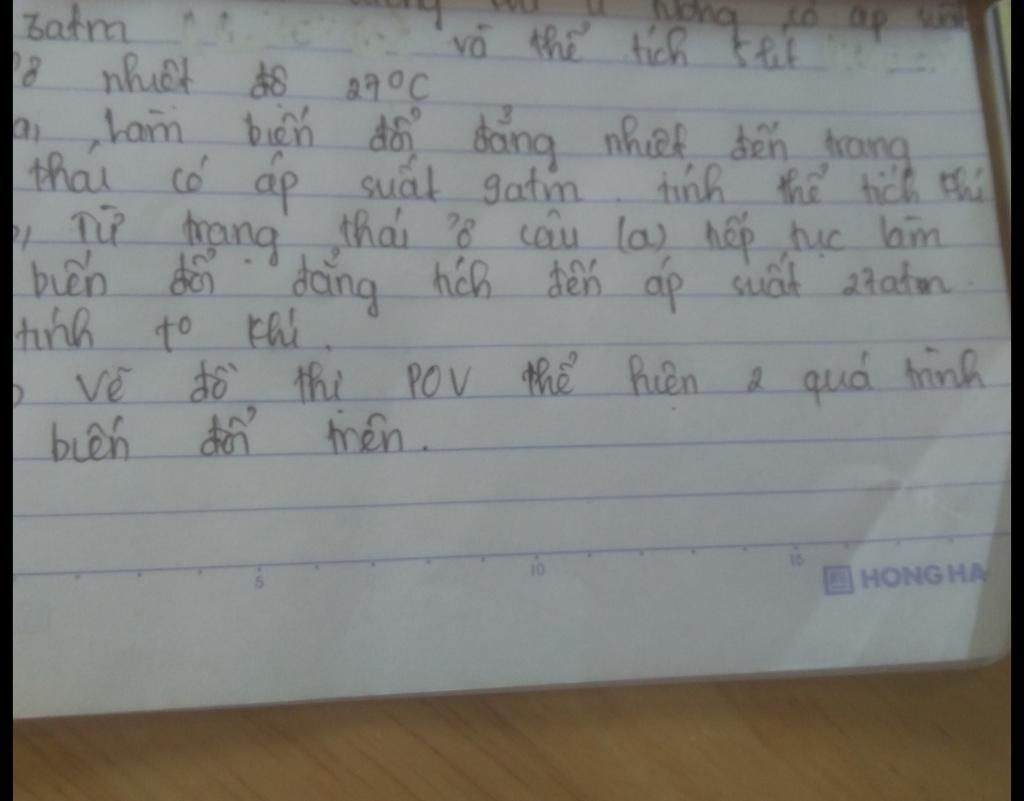 có áp suất
3atm và thể tích 5lít
ở nhiệt độ 27°C
a, làm biến đổi đẳng nhiệt đến trạng
thái có áp suất 9atm. tính thể tích khí
b, Từ trạng thái ở câu (a) tiếp tục làm
biến đổi đẳng tích đến áp suất 27atm.
tính t° khí.
Vẽ đồ thị POV thể hiện 2 quá trình
biến đổi trên.
5 10 15
HONG HA